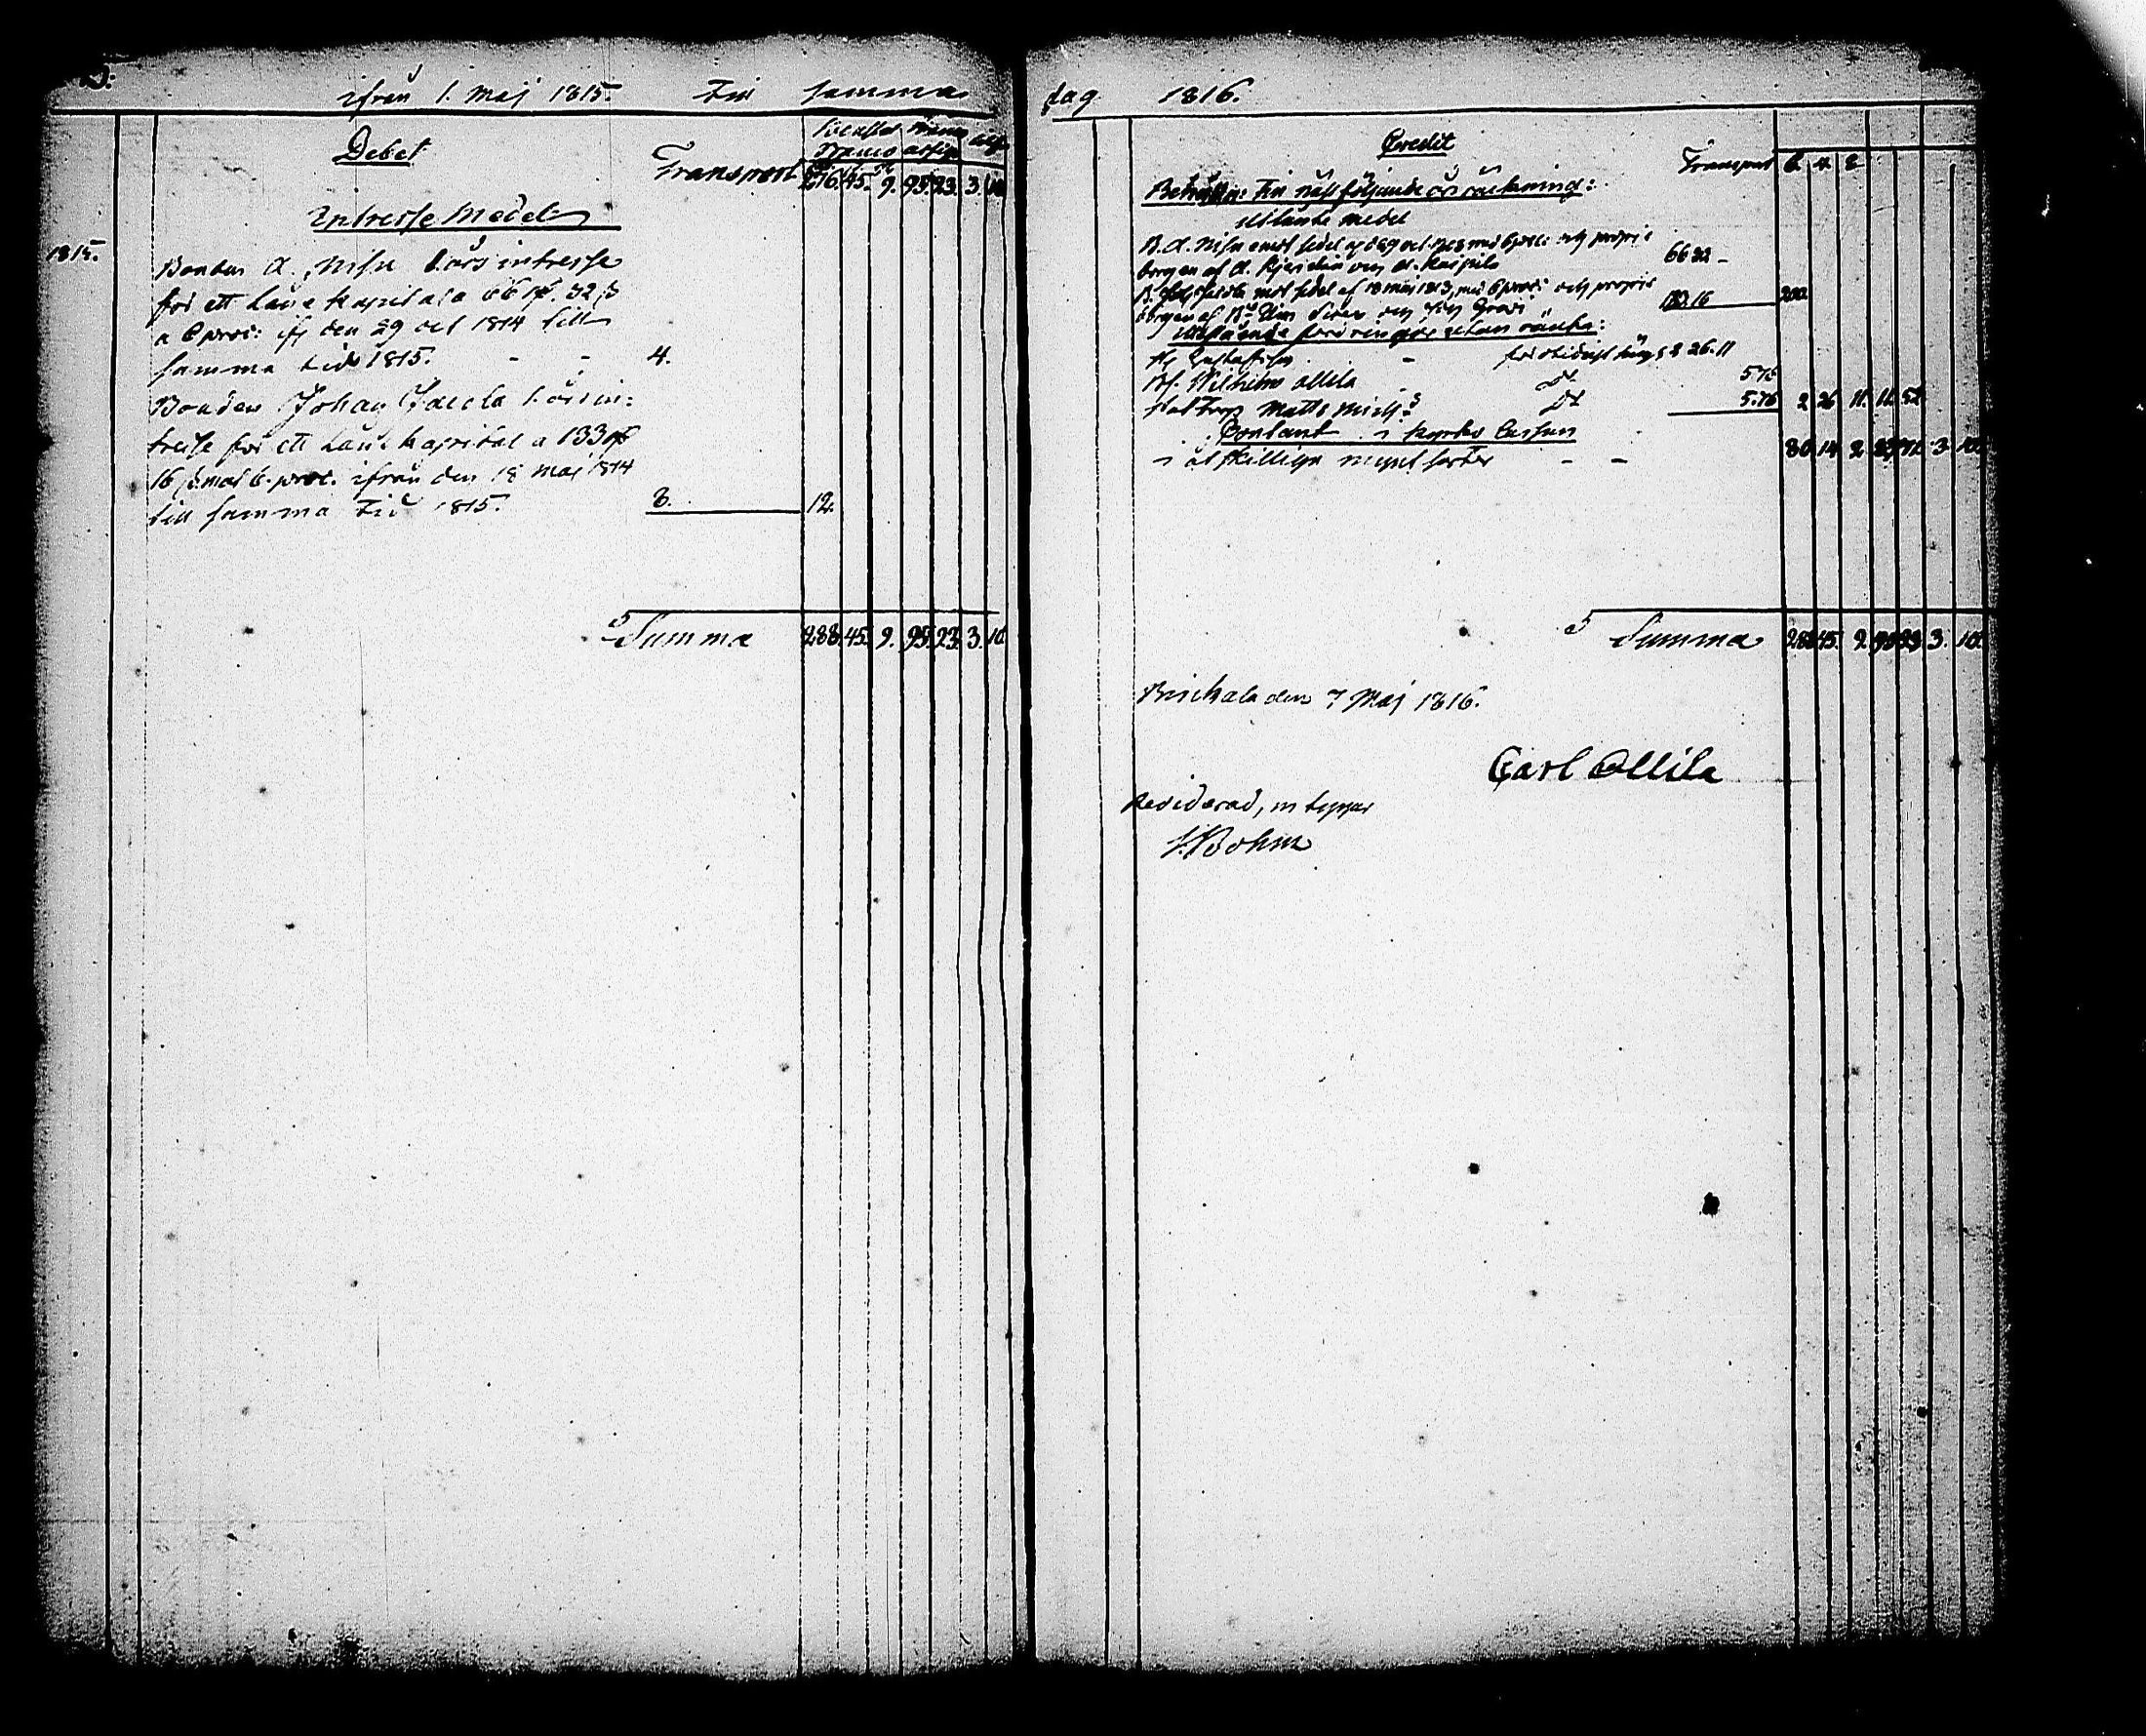 ifrån 1. Maj 1815. Till samma
Debet
Transport 276. 45. 9. 95. 23. 3. 10
Intresse Medel
1815.
Bonden A. Nisu 1. års intresse
för ett Låne kapital a 66 rd. 32 s
a 6 proc: ifr den 29 oct 1814 till
samma tid 1815. - - 4.
Bonden Johan Jacola 1. års in:
tresse för ett Låne kapital a 133 rd
16 s. mot 6. proc. ifrån den 18 Maj 1814
till samma Tid 1815. 8. 12.
Summa 288. 45. 9. 95. 23. 3. 10
dag 1816.
Credit
Transport 6. 4. 2
Behålln: Till näst följande års räckning:
Utlånte medel
B. A. Nisu emot sedel af d. 29 oct. med 6 proc: och proprie
borgen af A. och A. Kaipila 66 32 -
B. Joh. mot sedel af 18 Maj 1813, med 6 proc: och proprie
borgen af och 133. 16 200
Utestående fordringar utan ränta:
Gustafsson - 2 26. 11
Bf. Wilhelm Ollila - Dt 5 76
Matts Dt 5. 76 2 26 11. 11. 52
Contant i Kyrko Cassan
i åtskillige mynt sorter - - 80. 14 2 3. 10
Summa 288 45. 9. 95 23 3. 10.
den 7 Maj 1816.
Carl Ollila
Reviderad,
Bohm